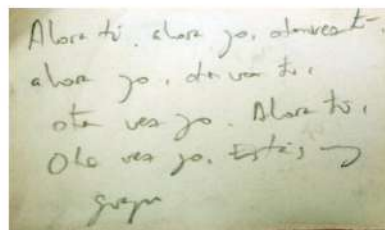 Ahora tú, ahora yo, otra vez tú,
ahora yo, otra vez tú,
otra vez yo. Ahora tú,
Otra vez yo. Estás muy
guapa